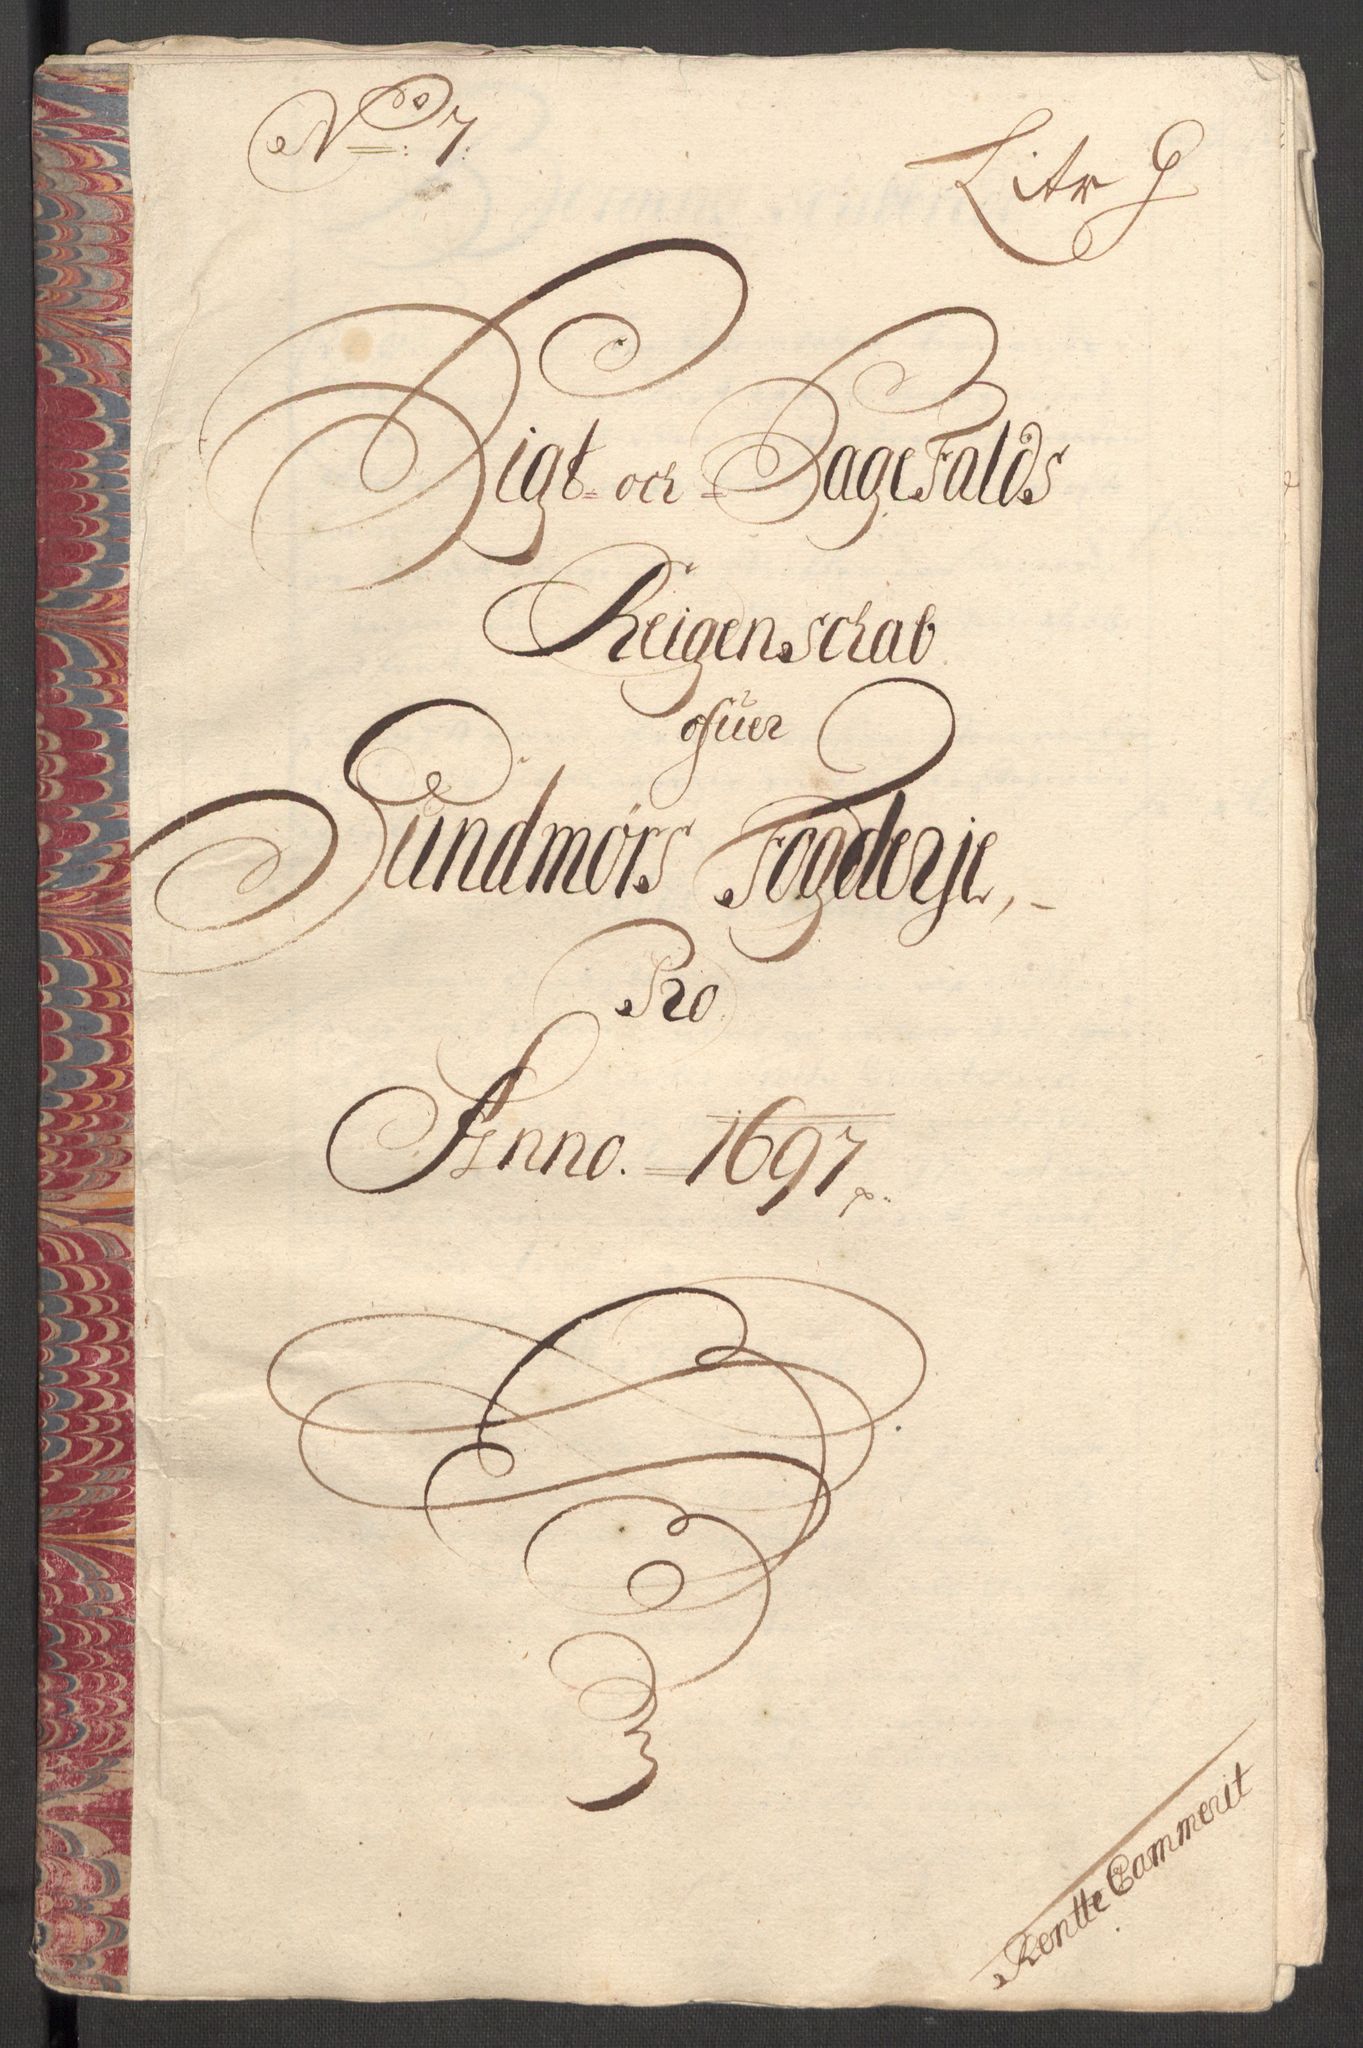 No: 7.
Litr G
Sigt- och- SageFalds
Reigenschab
ofuer
Sundmørs Fogderje,-
Pro
Anno. 1697
Rentte Cammerit